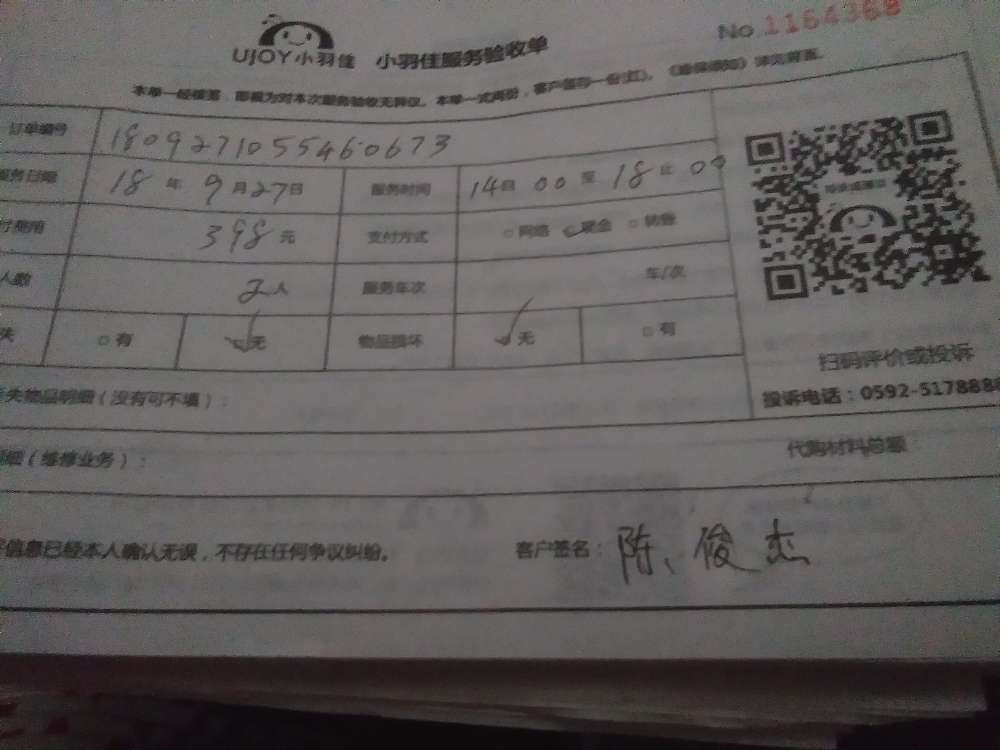 UJOY小羽佳 小羽佳服务验收单 No 1164368
本单一经签署，即视为对本次服务验收无异议。本单一式两份，客户留存一份(红)。
订单编号 180927105546 0673
服务日期 18 年 9 月 27 日 服务时间 14时 00 至 18时 00
费用 398 元 支付方式 网络 现金 转账
人数 2 人 服务车次 车/次
失 有 无 物品损坏 无 有
扫码评价或投诉
投诉电话：0592-5178888
失物品明细（没有可不填）：
细（维修业务）： 代购材料总额
信息已经本人确认无误，不存在任何争议纠纷。 客户签名： 陈俊杰